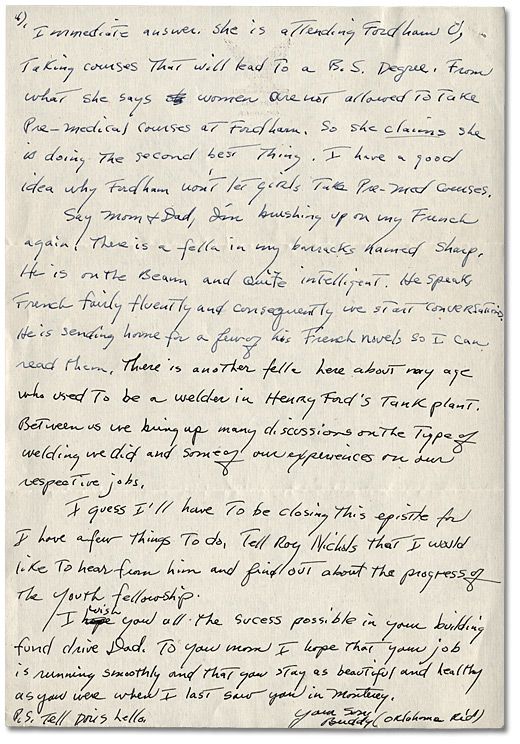 4).
Immediate answer. She is attending Fordham U,
Taking courses That will lead To a B.S. Degree. From
what she says women are not allowed To Take
Pre-medical courses at Fordham. So she claims she
is doing the second best Thing. I have a good
idea why Fordham won't let girls Take Pre-med courses.
Say Mom & Dad, I'm brushing up on my French
again. There is a fella in my barracks named Sharp.
He is on the Beam and quite intelligent. He speaks
French fairly fluently and consequently we start conversations.
He is sending home for a few of his French novels so I can
read them. There is another fella here about my age
who used To be a welder in Henry Ford's Tank plant.
Between us we bring up many discussions on the Type of
welding we did and some of our experiences on our
respective jobs.
I guess I'll have To be closing This epistle for
I have a few Things To do. Tell Roy Nichols that I would
like To hear from him and find out about the progress of
the Youth fellowship.
I wish you all the sucess possible in your building
fund drive Dad. To you mom I hope that your job
is running smoothly and that you stay as beautiful and healthy
as you were when I last saw you in Monterey.
Your Son
P.S. Tell Doris hello. Buddy (Oklahoma Kid)